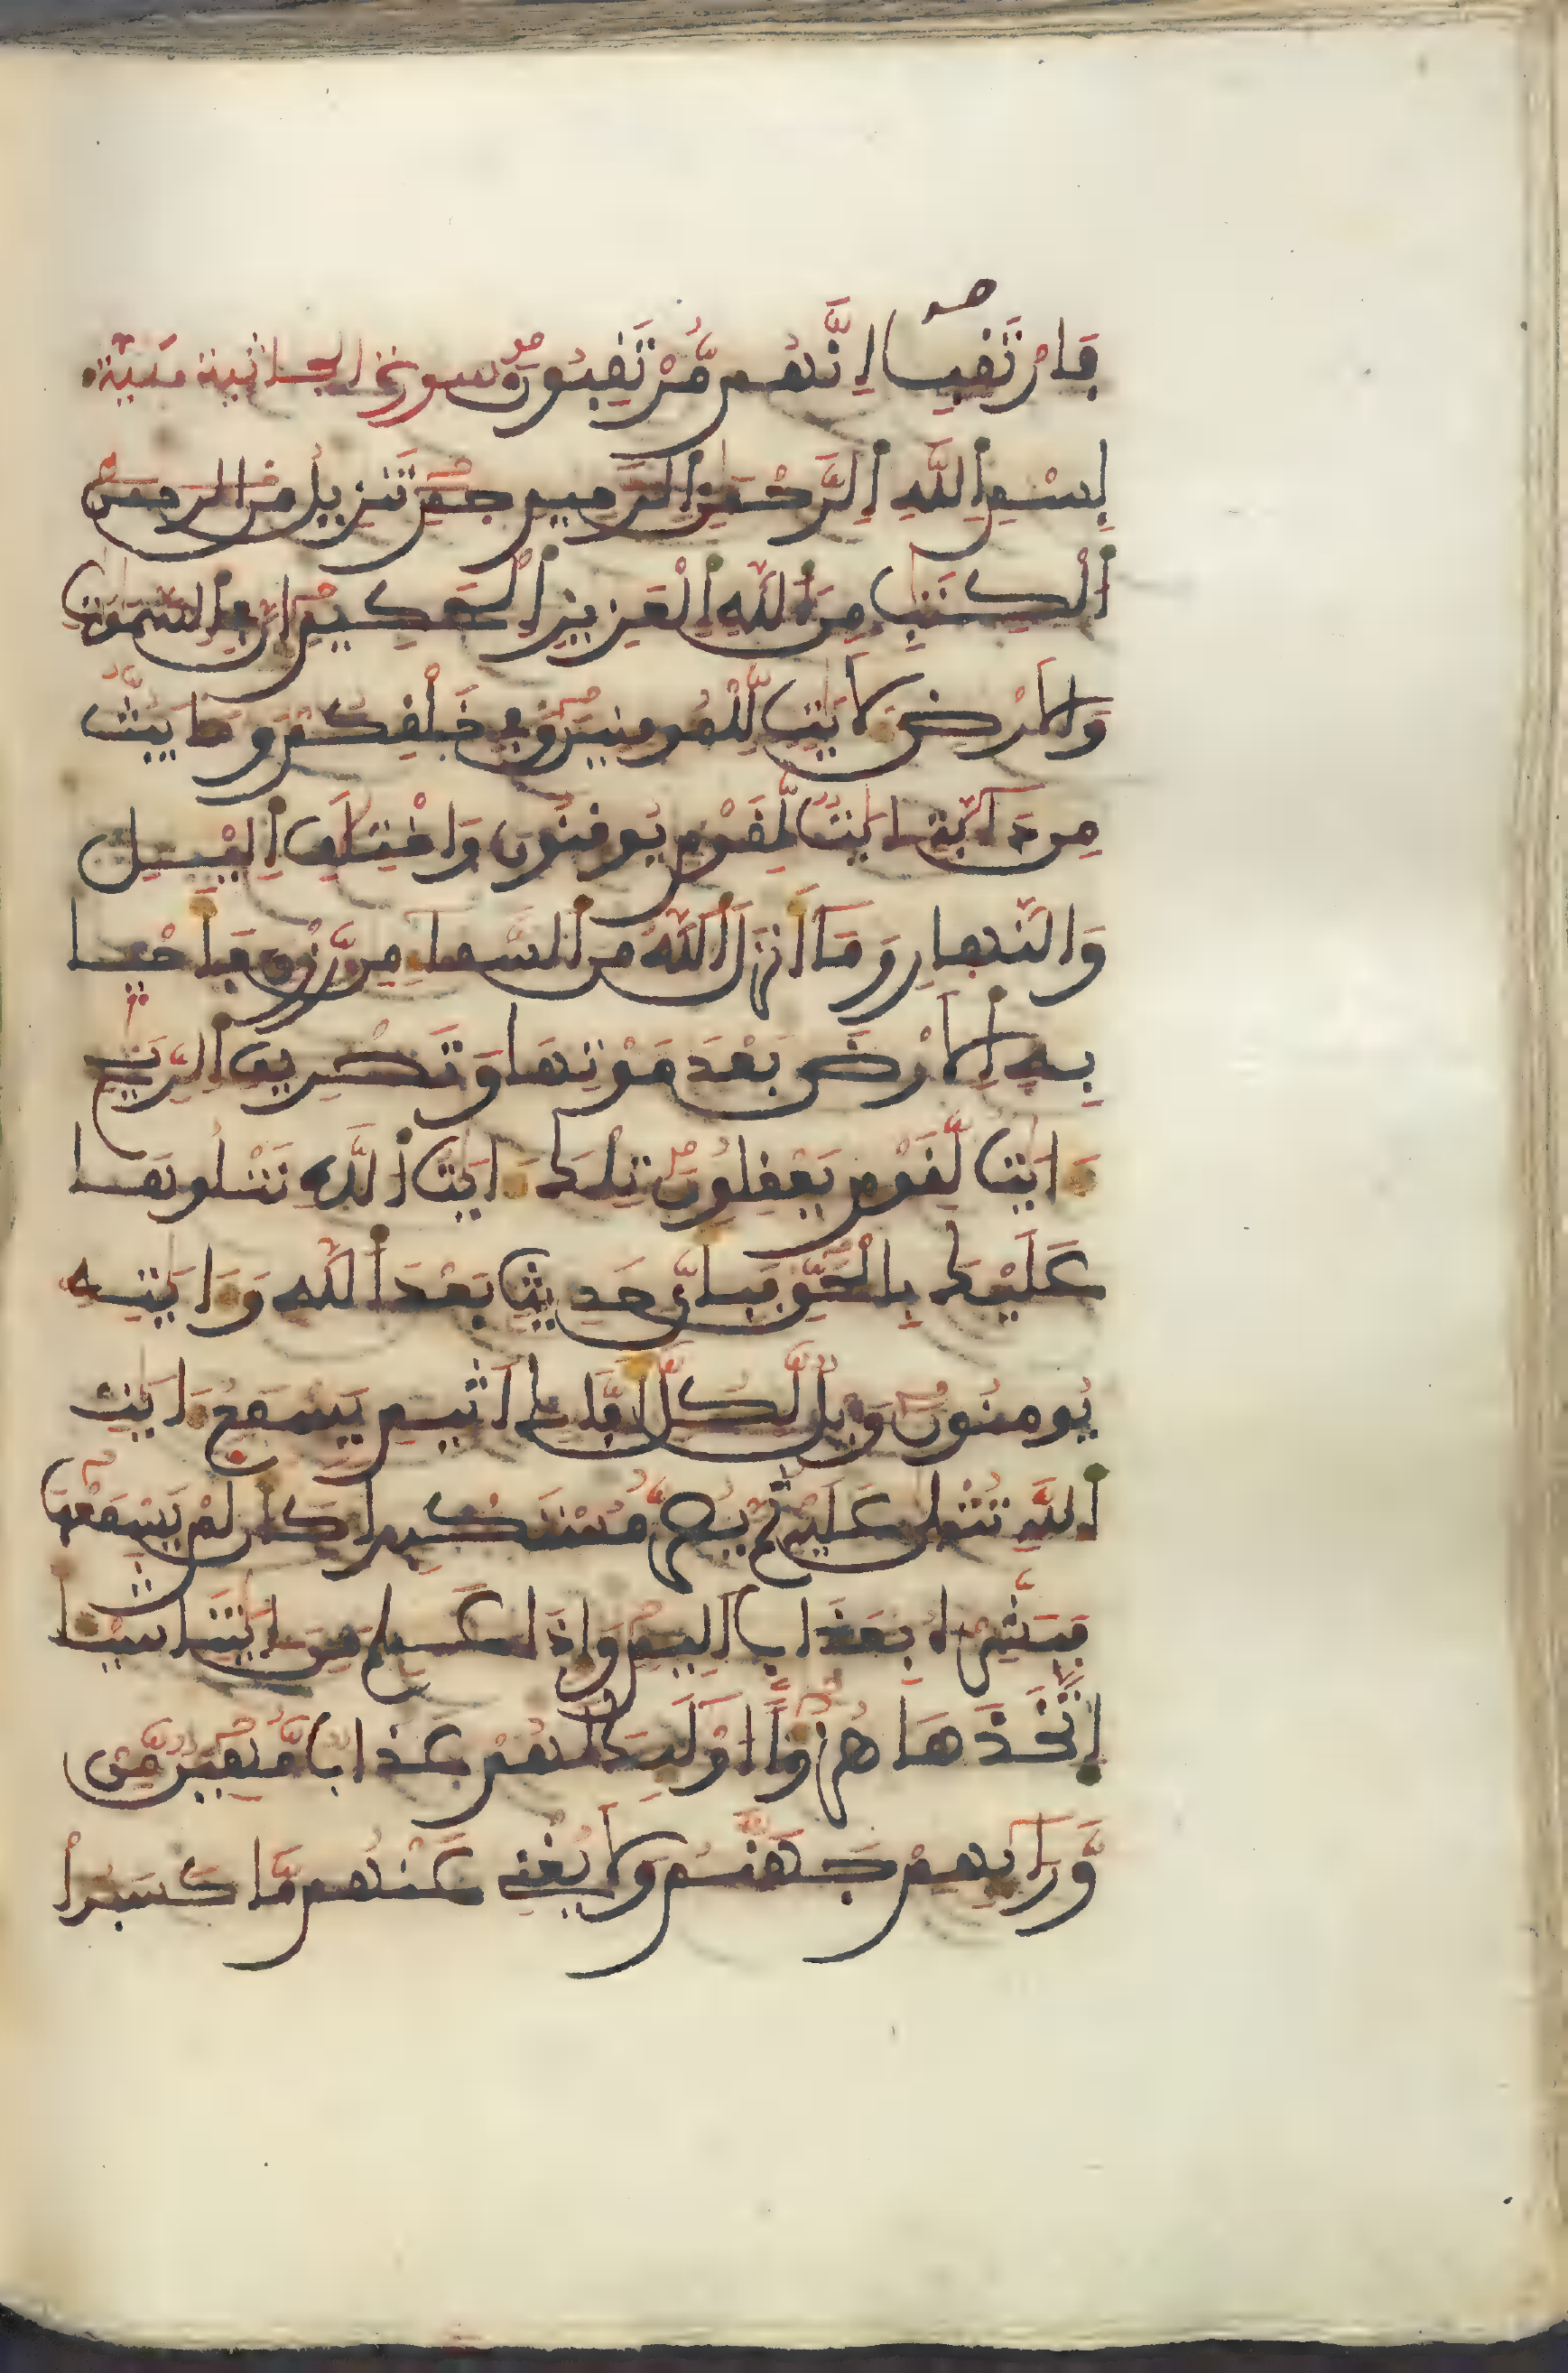 فَارْتَقِبِ اِنَّهُم مُّرْتَقِبُونَ سورة الجاثية مكية
بِسْمِ اللَّهِ الرَّحْمَٰنِ الرَّحِيمِ حمٓ تَنزِيلُ
الْكِتَٰبِ مِنَ اللَّهِ الْعَزِيزِ الْحَكِيمِ إِنَّ فِي السَّمَٰوَٰتِ
وَالَارْضِ لَأيَٰتٍ لِّلْمُومِنِينَ وَفِي خَلْقِكُمْ وَمَا يَبُثُّ
مِن دَآبَّةٍ ايَٰتٌ لِّقَوْمٍ يُوقِنُونَ وَاخْتِلَٰفِ الَّيْلِ
وَالنَّهارِ وَمَا أَنزَلَ اللَّهُ مِنَ السَّمَا مِن رِّزْقٍ فَأَحْيا
بِهِ الَارْضَ بَعْدَ مَوْتِهَا وَتَصْرِيفِ الرِّيَٰحِ
ءايَٰتٌ لِّقَوْمٍ يَعْقِلُونَ تِلْكَ ءايَٰتُ اللَّهِ نَتْلُوهَا
عَلَيْكَ بِالْحَقِّ فَبِأَيِّ حَدِيثٍ بَعْدَ اللَّهِ وَءايَٰتِهِ
يُومِنُونَ وَيْلٌ لِّكُلِّ أَفَّاكٍ اَثِيمٍ يَسْمَعُ ءايَٰتِ
اللَّهِ تُتْلَىٰ عَلَيْهِ ثُمَّ يُصِرُّ مُسْتَكْبِرا كَأَن لَّمْ يَسْمَعْهَا
فَبَشِّرْهُ بِعَذَابٍ اَلِيمٍ وَإِذَا عَلِمَ مِنَ ايَٰتِنَا شَيْـًٔا
اِتَّخَذَهَا هُزُؤًا اوْلَٰئِكَ لَهُمْ عَذَابٌ مُّهِينٌ مِّنْ
وَّرَائِهِمْ جَهَنَّمُ وَلَا يُغْنِي عَنْهُم مَّا كَسَبُوا